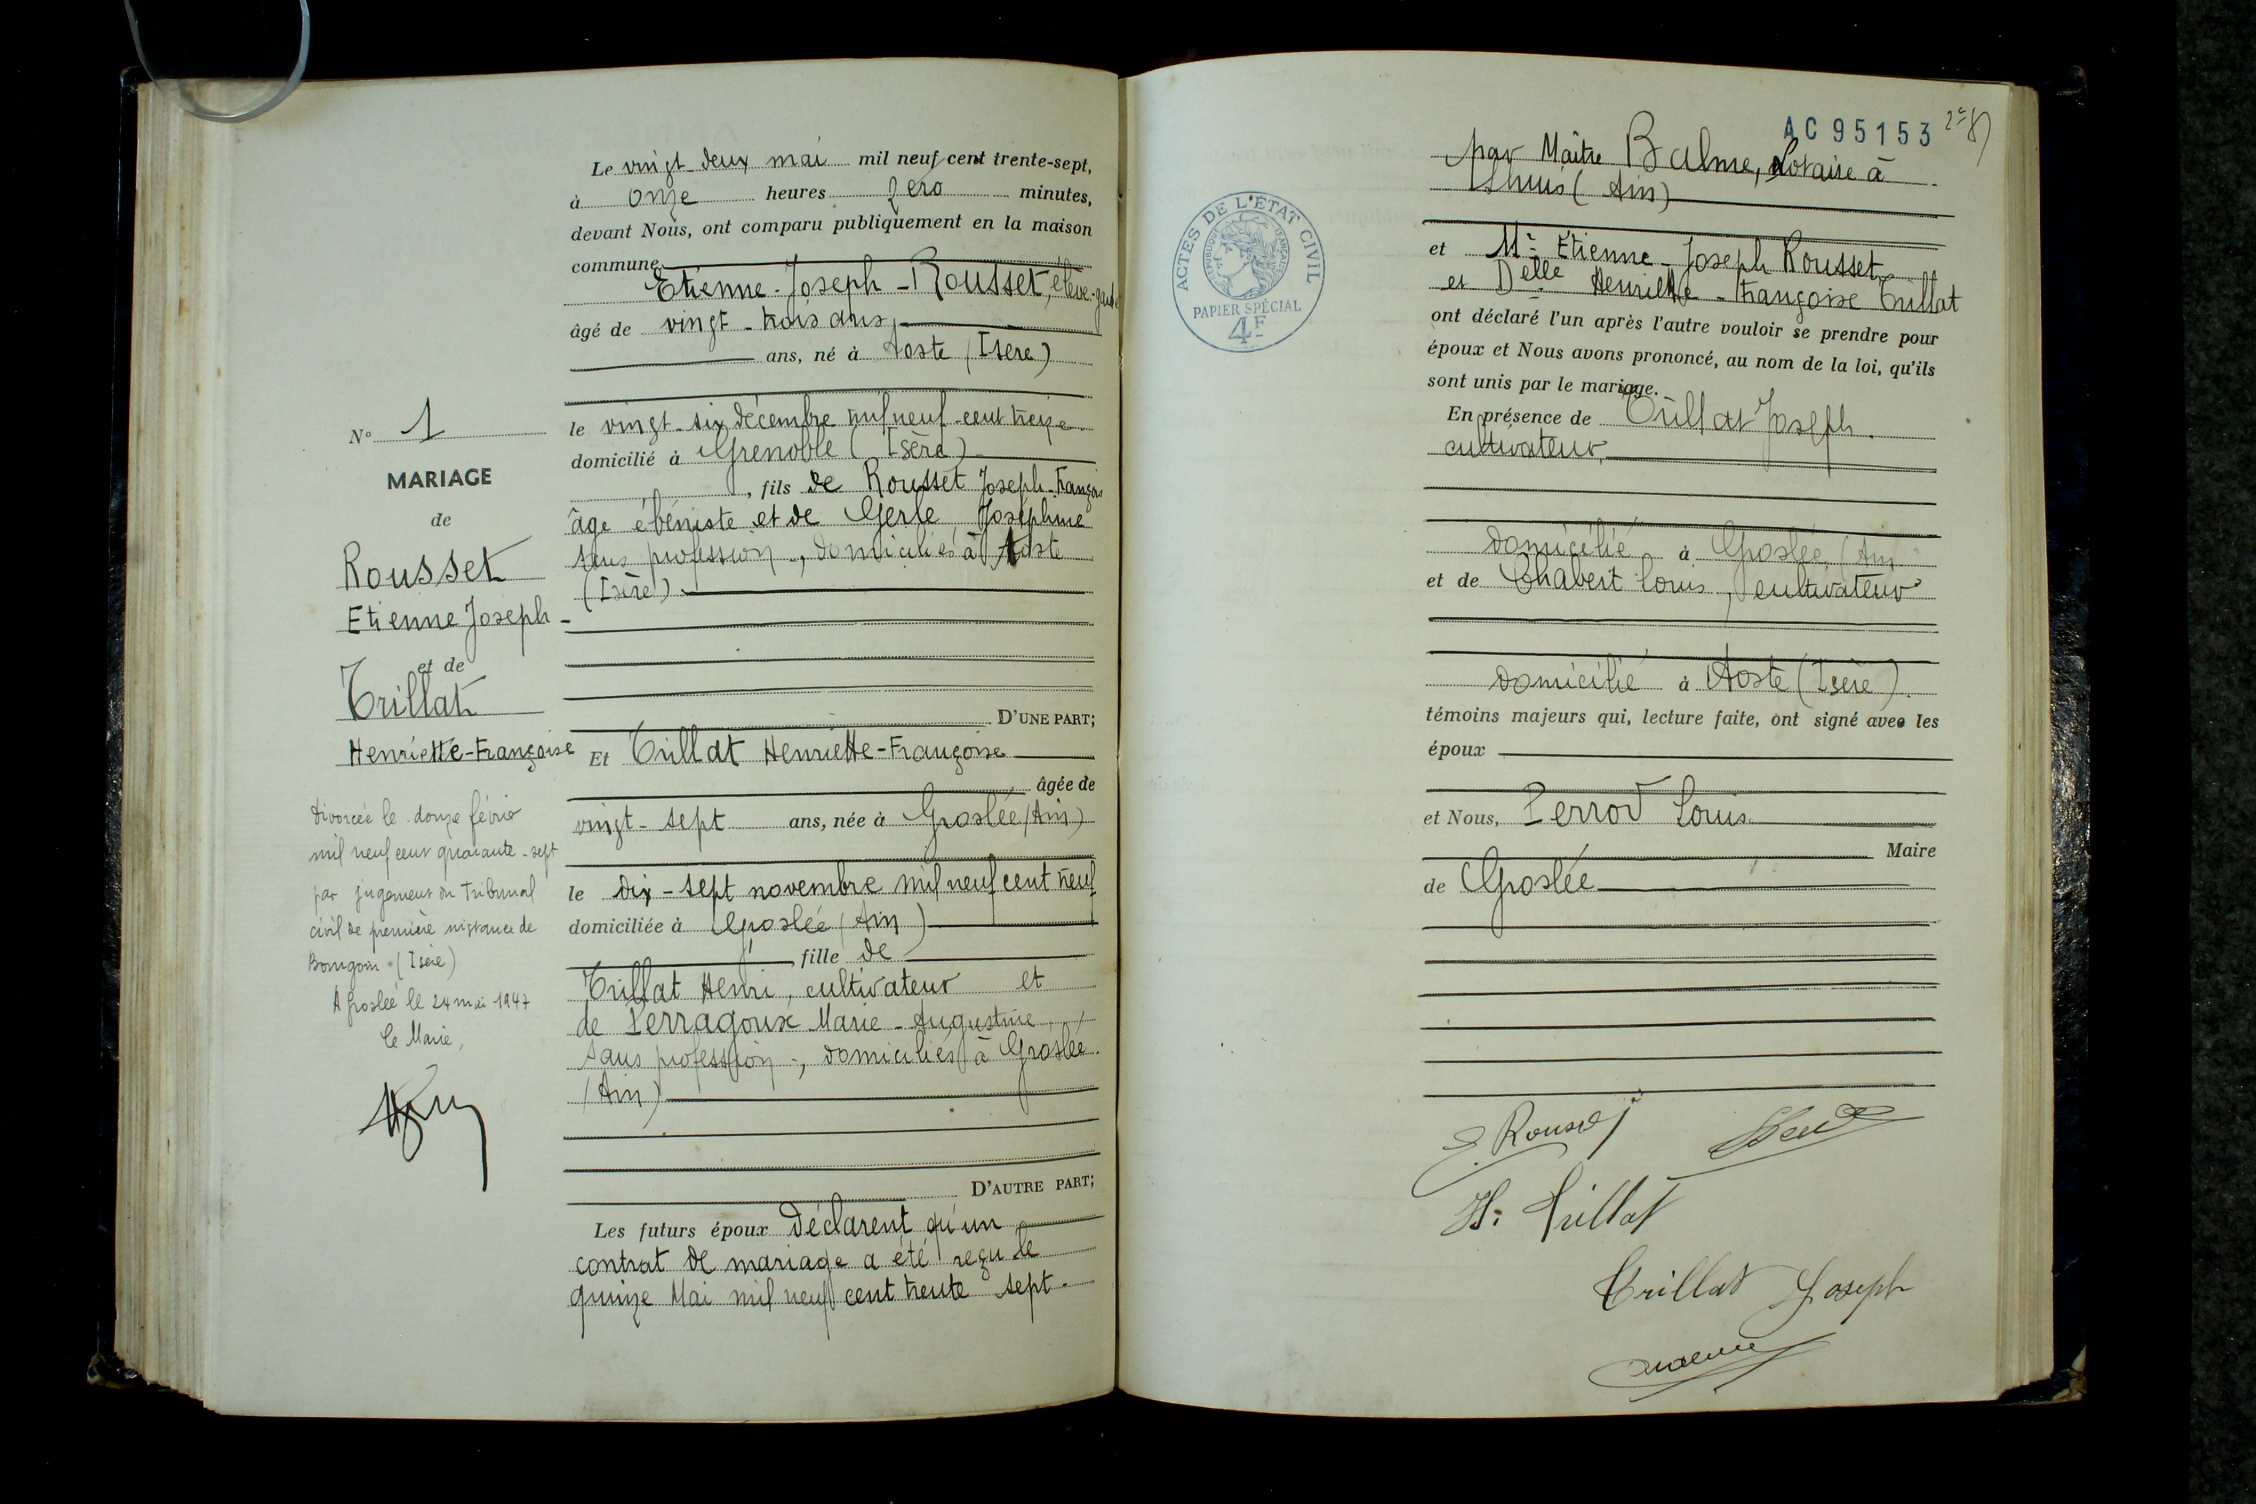 Le vingt-deux mai mil neuf cent trente-sept,
à onze heures zéro minutes,
devant Nous, ont comparu publiquement en la maison
commune
Etienne-Joseph-Rousset, élève-garde
âgé de vingt-trois ans,
ans, né à Aoste (Isère)
le vingt-six décembre mil neuf-cent treize
domicilié à Grenoble (Isère)
, fils de Rousset Joseph-François
âge ébéniste et de Gerle Joséphine
sans profession, domiciliés à Aoste
(Isère)
D'UNE PART;
Et Trillat Henriette-Françoise
âgée de
vingt-sept ans, née à Groslée (Ain)
le dix-sept novembre mil neuf cent neuf
domiciliée à Groslée (Ain)
, fille de
Trillat Henri, cultivateur et
de Perragoux Marie-Augustine,
sans profession, domiciliés à Groslée
(Ain)
D'AUTRE PART;
Les futurs époux déclarent qu'un
contrat de mariage a été reçu le
quinze Mai mil neuf cent trente sept
N° 1
MARIAGE
de
Rousset
Etienne Joseph-
et de
Trillat
Henriette-Françoise
Divorcée le douze février
mil neuf cent quarante-sept
par jugement du Tribunal
civil de première instance de
Bourgoin (Isère)
A Groslée le 24 mai 1947
Le Maire,
AC 95153
par Maître Balme, Notaire à
Lhuis (Ain)
ACTES DE L'ÉTAT CIVIL
RÉPUBLIQUE FRANÇAISE
PAPIER SPÉCIAL
4F
et Mr Etienne-Joseph Rousset
et Delle Henriette-Françoise Trillat
ont déclaré l'un après l'autre vouloir se prendre pour
époux et Nous avons prononcé, au nom de la loi, qu'ils
sont unis par le mariage.
En présence de Trillat Joseph
cultivateur,
domicilié à Groslée (Ain)
et de Chabert Louis, cultivateur
domicilié à Aoste (Isère).
témoins majeurs qui, lecture faite, ont signé avec les
époux
et Nous, Perrod Louis
Maire
de Groslée
E. Rousset
H. Trillat
Trillat Joseph